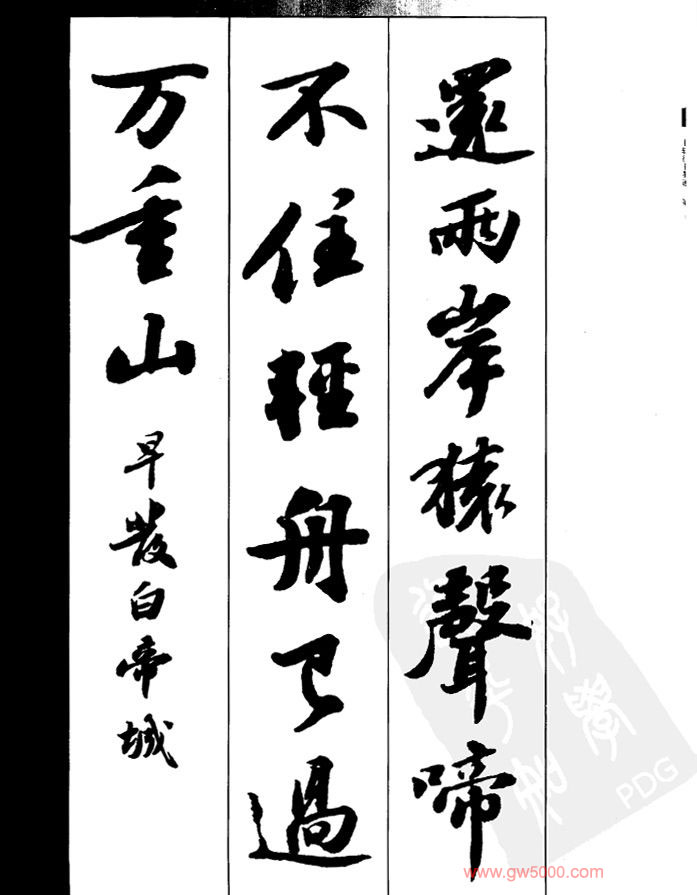 還兩岸猿聲啼
不住輕舟已過
万重山
早發白帝城
PDG
www.gw5000.com